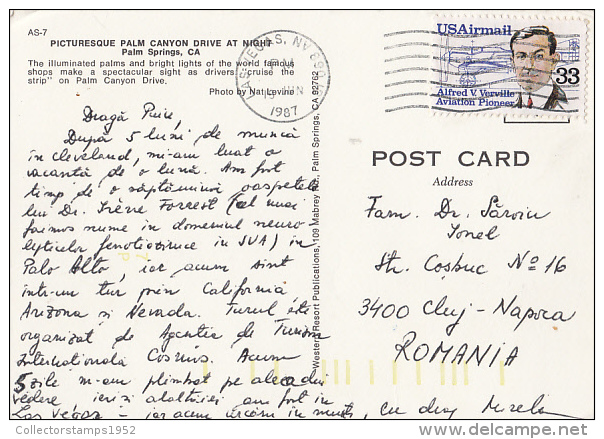 AS-7
PICTURESQUE PALM CANYON DRIVE AT NIGHT
Palm Springs, CA
The illuminated palms and bright lights of the world famous
shops make a spectacular sight as drivers "cruise the
strip" on Palm Canyon Drive.
Photo by Nat Levine
LAS VEGAS, NV
JUN
1987
USAirmail
33
Alfred V. Verville
Aviation Pioneer
Western Resort Publications, 109 Mabrey Rd., Palm Springs, CA 92262
Dragă Puiu,
După 5 luni de muncă
în Cleveland, mi-am luat o
vacanță de o lună. Am fost
timp de o săptămînă oaspetele
lui Dr. Irène Forrest (cel mai
faimos nume în domeniul neuro-
lepticelor fenotiazinice în SUA) în
Palo Alto, iar acum sînt
într-un tur prin California
Arizona și Nevada. Turul este
organizat de Agenția de Turism
Internațională Cosmos. Acum
5 zile m-am plimbat pe aleea din
vedere, ieri și alaltăieri am fost în
Las Vegas - iar acum urcăm în munți, cu drag Mirela
POST CARD
Address
Fam. Dr. Săroiu
Ionel
Str. Coșbuc Nº 16
3400 Cluj-Napoca
ROMANIA
Collectorstamps1952
delcampe.net